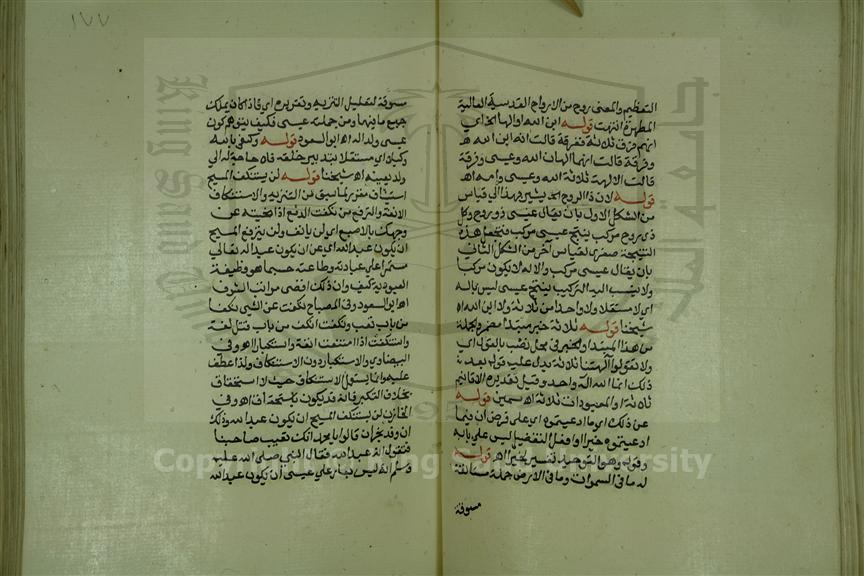 التعظيم والمعنى روح من الارواح القدسية العالية
المطهرة انتهت قوله ابن الله اوالها الخ اي
انهم فرق ثلاثة ففرقة قالت انه ابن الله
وفرقة قالت انهما الهان الله وعيسى وفرقة
قالت الالهة ثلاثة الله وعيسى وامه اهـ
قوله لان ذا الروح الخ يشير بهذا الى قياس
من الشكل الاول بان يقال عيسى ذو روح وكل
ذي روح مركب ينتج عيسى مركب فتجعل هذه
النتيجة صغرى لقياس آخر من الشكل الثاني
بان يقال عيسى مركب والاله لا يكون مركبا
ولا ينسب اليه التركيب ينتج عيسى ليس باله
اي لا مستقلا ولا واحدا من ثلاثة ولا ابن الله اهـ
شيخنا قوله ثلاثة خبر مبتدا مضمر والجملة
من هذا المبتدا والخبر في محل نصب بالقول اي
ولا تقولوا آلهتنا ثلاثة يدل عليه قوله بعد
ذلك انما الله اله واحد وقيل تقديره الاقانيم
ثلاثة او المعبودات ثلاثة اهـ سمين قوله
عن ذلك اي ما ادعيتموه اي على فرض ان فيما
ادعيتموه خيرا او افعل التفضيل ليس على بابه
وقوله وهو التوحيد تفسير لخيرا اهـ قوله
له ما في السموات وما في الارض جملة مستانفة
مسوقة
١٧٧
مسوقة لتعليل التنزيه وتقريره اي فاذا كان يملك
جميع ما فيهما ومن جملته عيسى فكيف يتوهم كون
عيسى ولدا له اهـ ابو السعود قوله وكفى بالله
وكيلا اي مستقلا بتدبير خلقه فلا حاجة له الى
ولد يعينه اهـ شيخنا قوله لن يستنكف المسيح
استئناف مقرر لما سبق من التنزيه والاستنكاف
الانفة والترفع من نكفت الدمع اذا نحيته عن
وجهك بالاصبع اي لن يانف ولن يترفع المسيح
ان يكون عبدا لله اي عن ان يكون عبدا له تعالى
مستمرا على عبادته وطاعته حسبما هو وظيفة
العبودية كيف وان ذلك اقصى مراتب الشرف
اهـ ابو السعود وفي المصباح نكفت عن الشئ نكفا
من باب تعب ونكفت انكف من باب قتل لغة
واستنكفت اذا امتنعت انفة واستكبارا اهـ وفي
البيضاوي والاستكبار دون الاستنكاف ولذا عطف
عليه وانما يستعمل الاستنكاف حيث لا استحقاق
بخلاف التكبر فانه قد يكون باستحقاق اهـ وفي
الخازن لن يستنكف المسيح ان يكون عبدا لله وذلك
ان وفد نجران قالوا يا محمد انك تعيب صاحبنا
فتقول انه عبد الله فقال النبي صلى الله عليه
وسلم انه ليس بعار على عيسى ان يكون عبدا لله
جامعة الملك
King Saud
Copyright © King Saud University